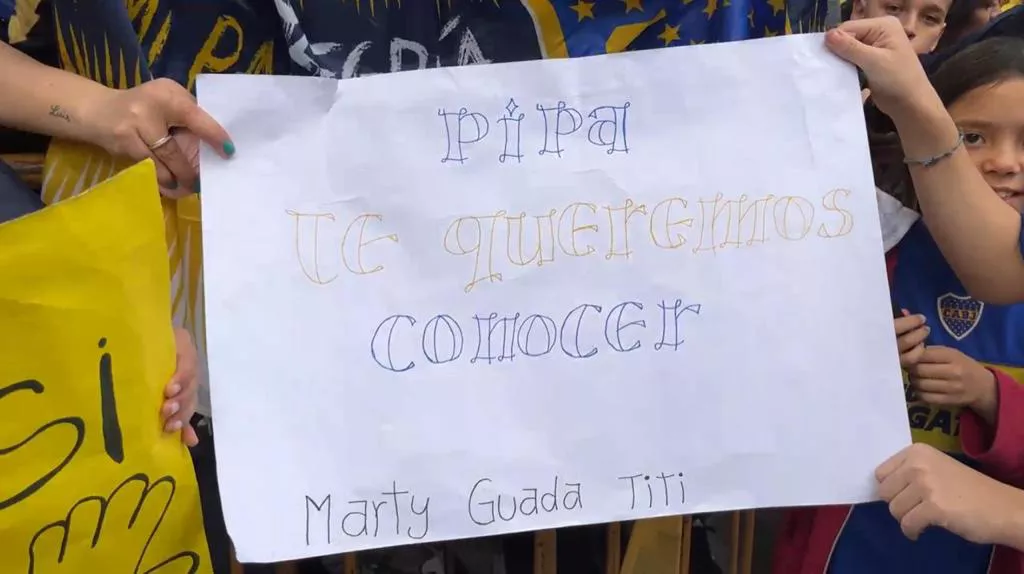 PIPA
TE QUEREMOS
CONOCER
Marty Guada Titi
Si
Luis
CABJ